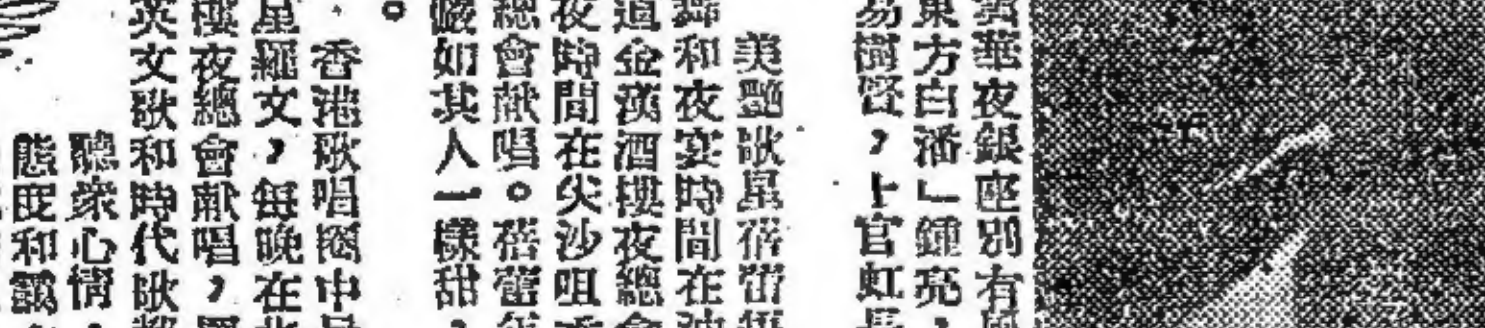 華夜銀座別有
東方白潘」鍾亮,
易樹賢,上官虹長
美艷歌星蓓蕾
和夜宴時間在
道金漢酒樓夜總會
夜時間在尖沙咀
總會献唱。蓓蕾年
如其人一樣甜,
。
香港歌唱圈中
星羅文,每晚在北
樓夜總會献唱,羅
英文歌和時代歌
聽衆心情。
態度和